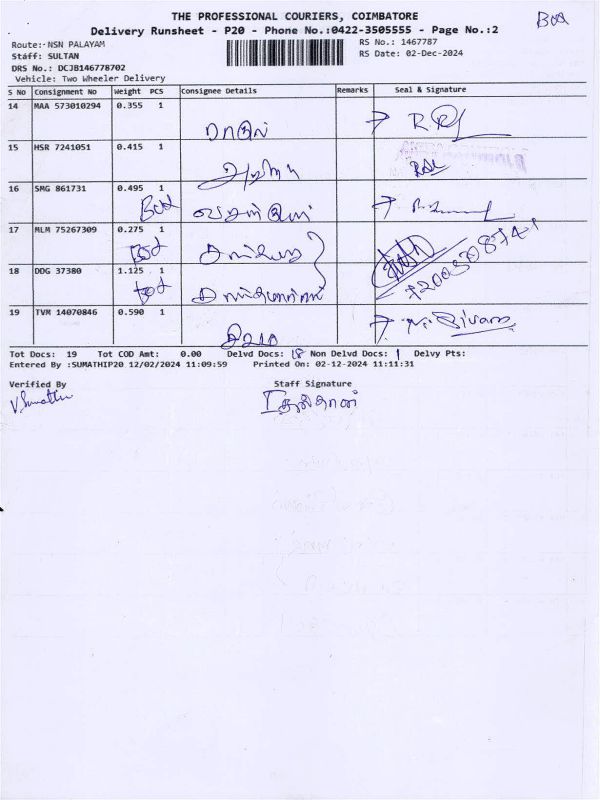 THE PROFESSIONAL COURIERS, COIMBATORE
Delivery Runsheet - P20 - Phone No.:0422-3505555 - Page No.:2
Route:- NSN PALAYAM RS No.: 1467787
Staff: SULTAN RS Date: 02-Dec-2024
DRS No.: DCJB146778702
Vehicle: Two Wheeler Delivery
S No Consignment No Weight PCS Consignee Details Remarks Seal & Signature
14 MAA 573010294 0.355 1
ராகுல்
15 HSR 7241051 0.415 1
16 SMG 861731 0.495 1
17 MLM 75267309 0.275 1
7200308741
18 DDG 37380 1.125 1
19 TVM 14070846 0.590 1
சிவா
Tot Docs: 19 Tot COD Amt: 0.00 Delvd Docs: 18 Non Delvd Docs: 1 Delvy Pts:
Entered By :SUMATHIP20 12/02/2024 11:09:59 Printed On: 02-12-2024 11:11:31
Verified By Staff Signature
V.Sumathi